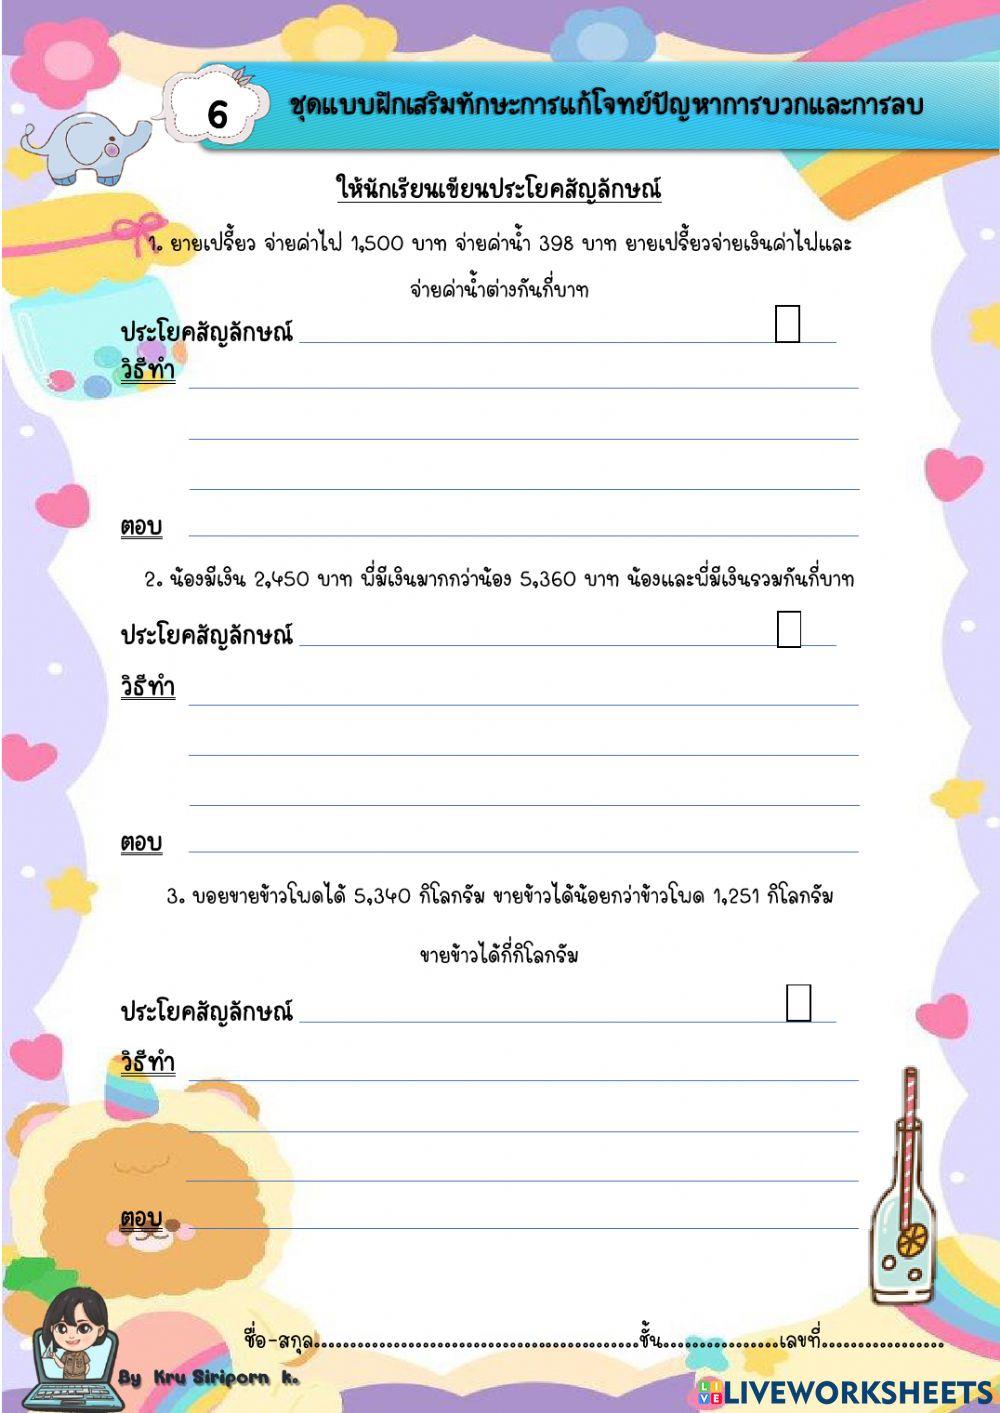 6
ชุดแบบฝึกเสริมทักษะการแก้โจทย์ปัญหาการบวกและการลบ
ให้นักเรียนเขียนประโยคสัญลักษณ์
1. ยายเปรี้ยว จ่ายค่าไป 1,500 บาท จ่ายค่าน้ำ 398 บาท ยายเปรี้ยวจ่ายเงินค่าไปและ
จ่ายค่าน้ำต่างกันกี่บาท
ประโยคสัญลักษณ์
วิธีทำ
ตอบ
2. น้องมีเงิน 2,450 บาท พี่มีเงินมากกว่าน้อง 5,360 บาท น้องและพี่มีเงินรวมกันกี่บาท
ประโยคสัญลักษณ์
วิธีทำ
ตอบ
3. บอยขายข้าวโพดได้ 5,340 กิโลกรัม ขายข้าวได้น้อยกว่าข้าวโพด 1,251 กิโลกรัม
ขายข้าวได้กี่กิโลกรัม
ประโยคสัญลักษณ์
วิธีทำ
ตอบ
ชื่อ-สกุล.............................................ชั้น................เลขที่.................
By Kru Siriporn k.
LIVE LIVEWORKSHEETS